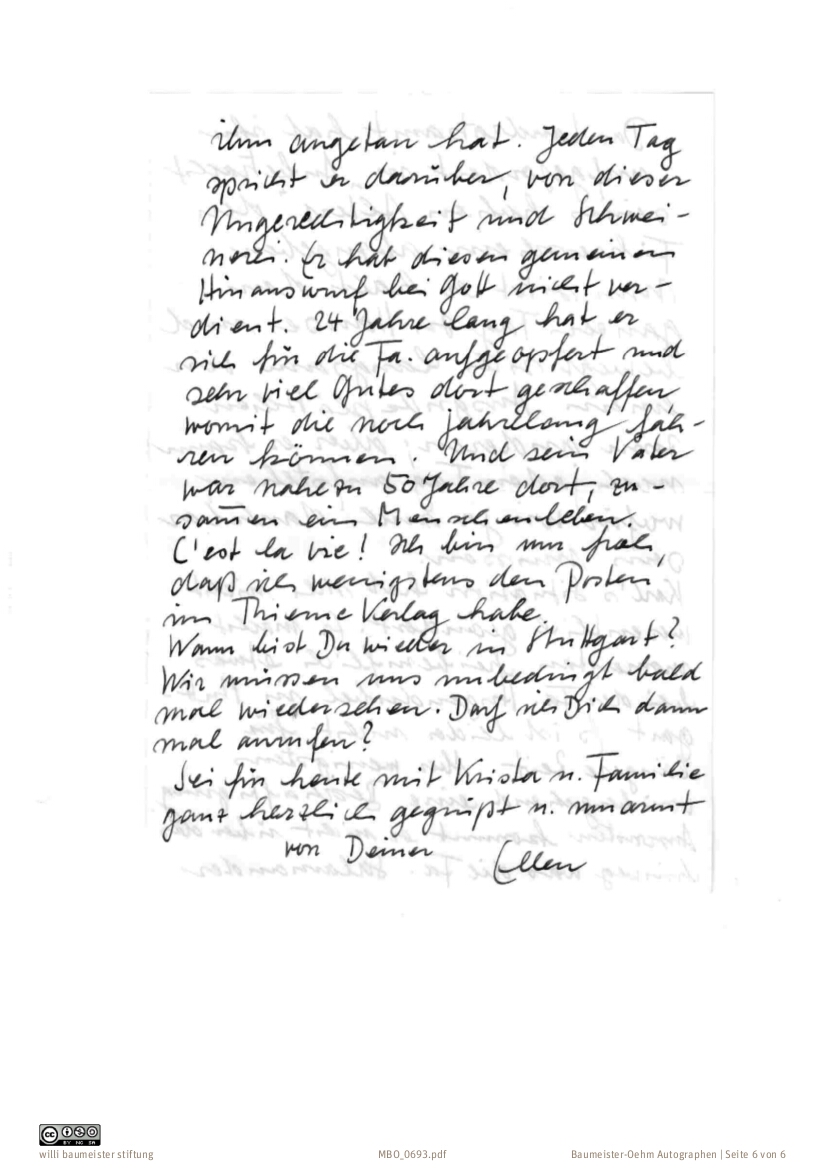 ihm angetan hat. Jeden Tag
spricht er darüber, von dieser
Ungerechtigkeit und Schwei-
nerei. Er hat diesen gemeinen
Hinauswurf bei Gott nicht ver-
dient. 24 Jahre lang hat er
sich für die Fa. aufgeopfert und
sehr viel Gutes dort geschaffen,
womit die noch jahrelang fah-
ren können. Und sein Vater
war nahezu 50 Jahre dort, zu-
sam̄en ein Menschenleben.
C'est la vie! Ich bin nur froh,
daß ich wenigstens den Posten
im Thieme Verlag habe.
Wann bist Du wieder in Stuttgart?
Wir müssen uns unbedingt bald
mal wiedersehen. Darf ich Dich dann
mal anrufen?
Sei für heute mit Krista u. Familie
ganz herzlich gegrüßt u. umarmt
von Deiner Ellen
CC BY NC SA
willi baumeister stiftung MBO_0693.pdf Baumeister-Oehm Autographen | Seite 6 von 6